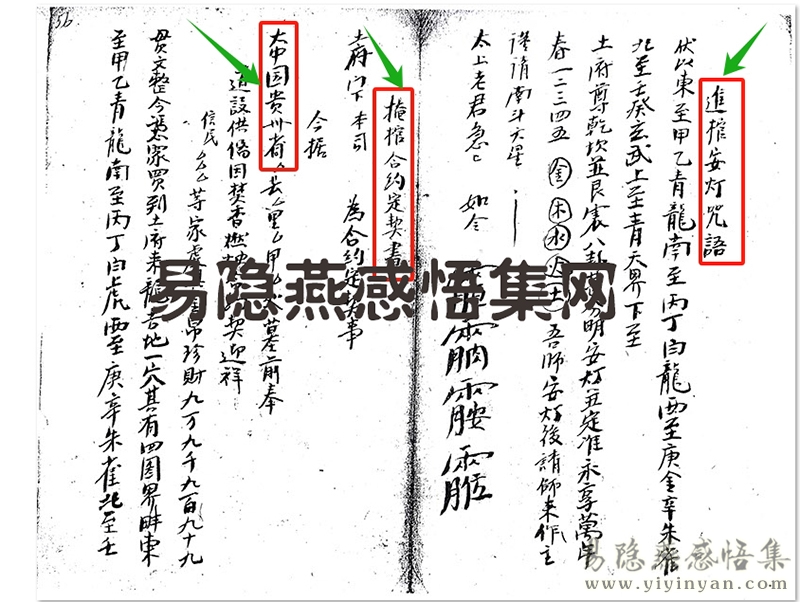 進棺安灯咒語
伏以東至甲乙青龍南至丙丁白龍西至庚金辛朱雀
北至壬癸玄武上至青天界下至
土府尊乾坎並艮震八卦 明安灯並定准永享萬年
春一二三四五金木水火土吾師安灯後請師来作主
謹請南斗六星
太上老君急急 如令
掩棺合约定契書
土府门下本司 為合约定 事
今据
大中国贵州省厶县厶里厶甲 墓前奉
道設供 因焚香燃 契迎祥
信民厶厶等家 帛珍財九万九千九百九十九
贯文整今憑家買到土府来龍吉地一穴其有四圍界畔東
至甲乙青龍南至丙丁白虎西至庚辛朱雀北至壬
56
易隐燕感悟集网
易隐燕感悟集
www.yiyinyan.com